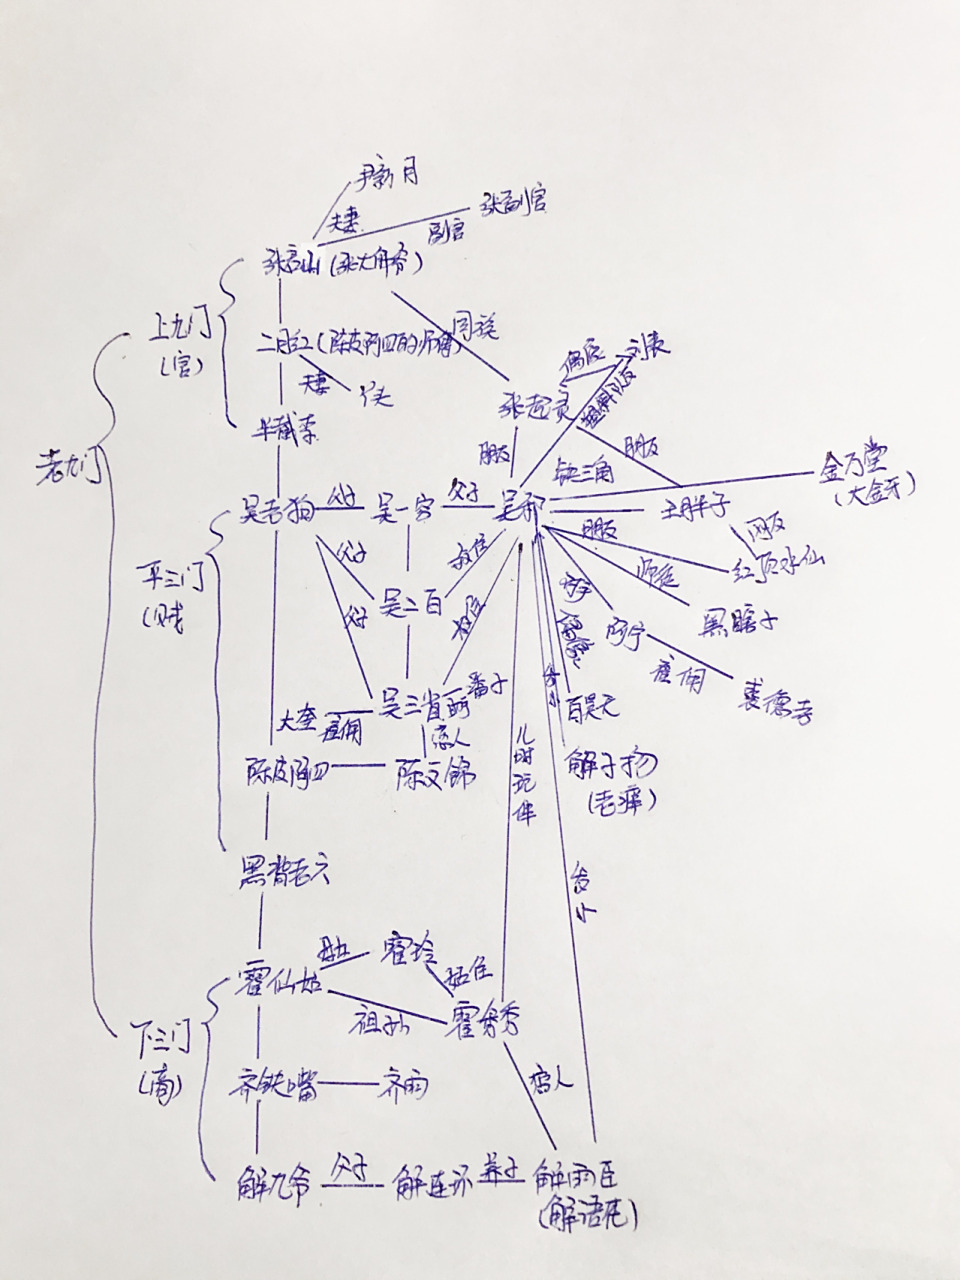 尹新月
张副官
夫妻
副官
张启山(张大佛爷)
上九门
(官)
二月红(陈皮阿四的师傅)
同族
夫妻
丫头
偶像
刘丧
塑料队友
半截李
张起灵
朋友
朋友
铁三角
老九门
金万堂
(大金牙)
吴老狗
父子
吴一穷
父子
吴邪
王胖子
网友
朋友
红顶水仙
平三门
(贼
父子
吴二百
叔侄
师徒
黑瞎子
父子
叔侄
阿宁
雇佣
裘德考
大奎
雇佣
吴三省
潘子
恋人
发小
百昊天
儿时玩伴
陈皮阿四
陈文锦
解子扬
(老痒)
黑背老六
发小
母女
霍玲
霍仙姑
姑侄
祖孙
霍秀秀
下三门
(商)
齐铁嘴
齐羽
恋人
解九爷
父子
解连环
养子
解雨臣
(解语花)